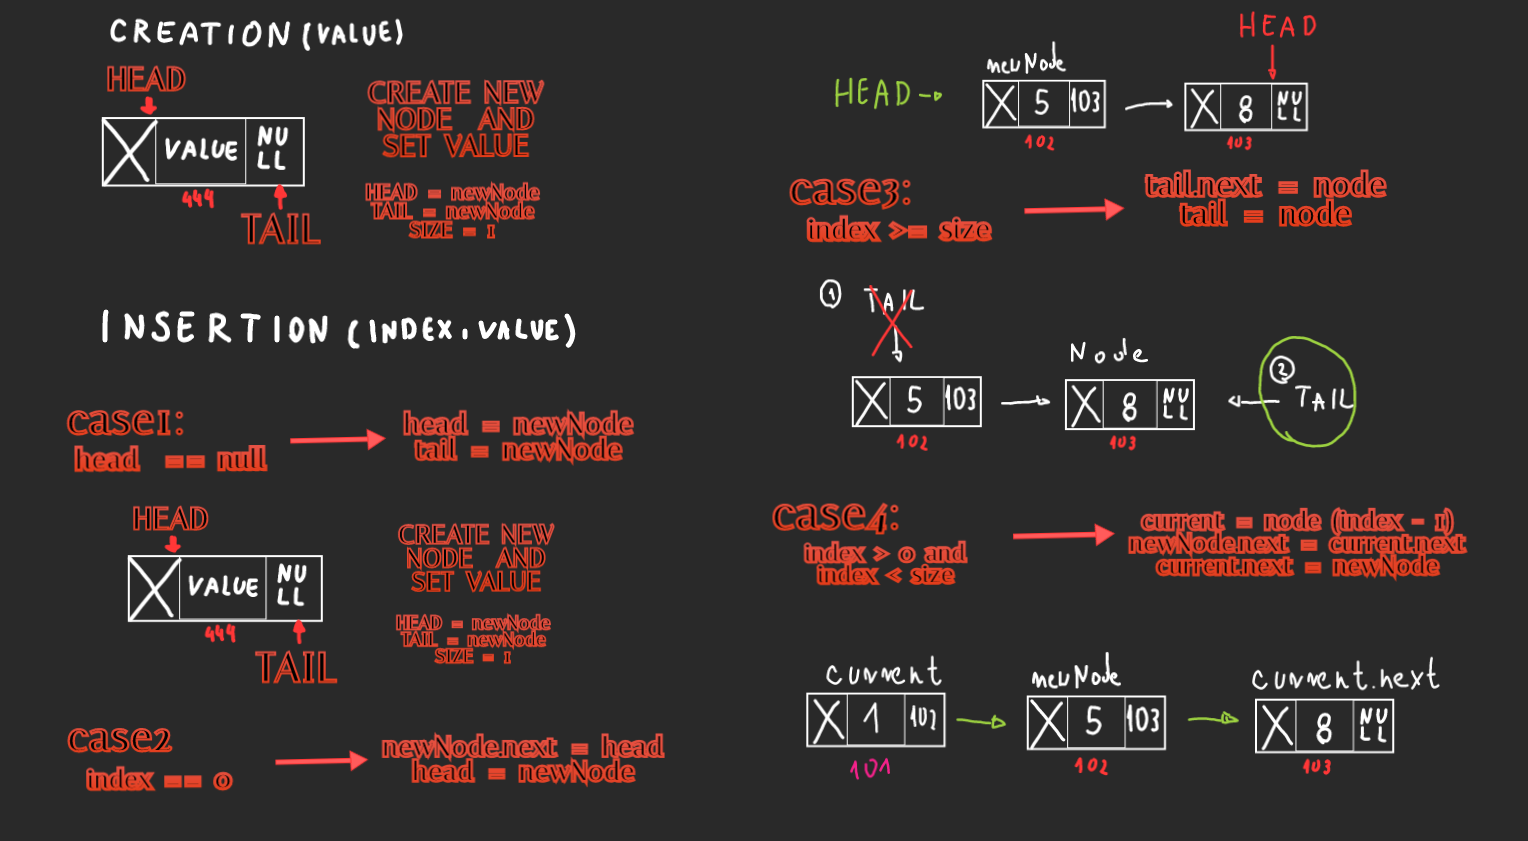 CREATION (VALUE)
HEAD
X VALUE NU
LL
444
TAIL
CREATE NEW
NODE AND
SET VALUE
HEAD = newNode
TAIL = newNode
SIZE = 1
INSERTION (INDEX, VALUE)
case1:
head == null
head = newNode
tail = newNode
HEAD
X VALUE NU
LL
444
TAIL
CREATE NEW
NODE AND
SET VALUE
HEAD = newNode
TAIL = newNode
SIZE = 1
case2
index == 0
newNode.next = head
head = newNode
HEAD
newNode
HEAD
X 5 103
X 8 NU
LL
102
103
case3:
index >= size
tail.next = node
tail = node
1 TAIL
Node
2
TAIL
X 5 103
X 8 NU
LL
102
103
case4:
index > 0 and
index < size
current = node (index - 1)
newNode.next = current.next
current.next = newNode
current
newNode
current.next
X 1 102
X 5 103
X 8 NU
LL
101
102
103